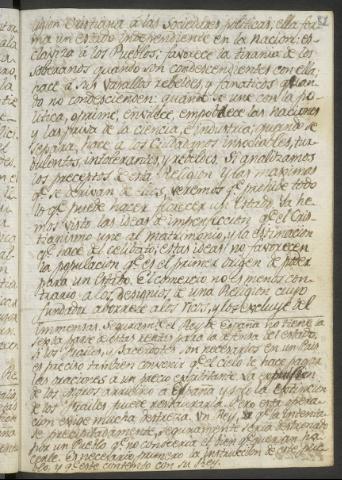 82
ligion christiana á las Sociedades politicas; ella for
ma un estado independiente en la nacion: es
claviza á los Pueblos; favorece la tirania de los
soberanos quando son condescendientes con ella;
hace á sus Vasallos rebeldes y fanaticos quan
to no condescienden: quando se une con la po
litica, oprime, envilece empobrece las naciones
y las priva de la ciencia, é industria; quando se
separa, hace á los Ciudadanos insociables, tur
bulentos, intolerantes, y rebeldes. Si analizamos
los preceptos de esta Religion y las maximas
qe se derivan de ellas, veremos qe prohibe todo
lo qe puede hacer florecer un Estado. Ya he
mos visto las ideas de imperfeccion qe el Cris
tianismo une al matrimonio, y la estimacion
qe hace del celibato; estas ideas no favorecen
la poblacion qe es el primer origen de poder
para un Estado. El comercio no es menos con
trario á los designios de una Religion cuyo
fundador aborrece á los ricos, y los excluye del
inmensas. Seguramente el Rey de España no tiene la
sexta parte de estas rentas para la defensa del estado.
Si los frailes, y Sacerdotes son necesarios en un Pue
es preciso tambien convenir qe el cielo le hace pagar
las oraciones á un precio exorbitante. La expulsion
de los moros arruinó á España y solo la extincion
de los frailes puede restaurarla. Pero esta operacion
exige mucha destreza. Un Rey qe la intenta
se precipitadamente, seguramente seria destronado
por un Pueblo qe no conoceria el bien qe querian ha
cerle. Es necesario primero la instruccion de este pue
blo, y qe esté contento con su Rey.